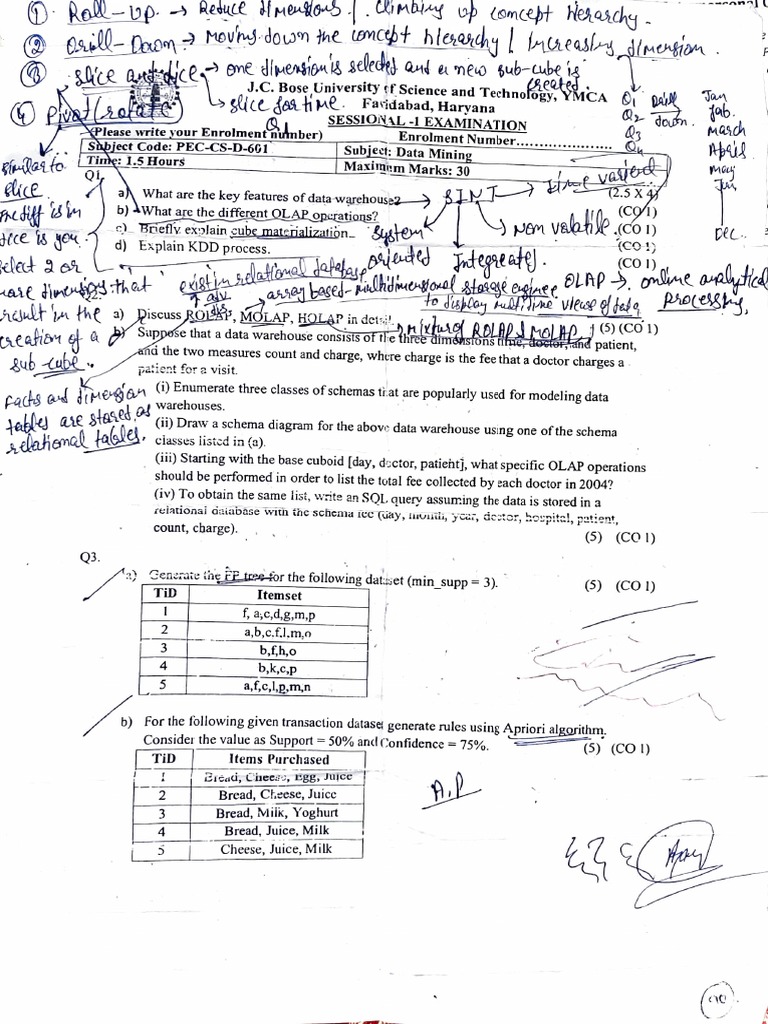 ① Roll-Up → Reduce dimensions / Climbing up concept hierarchy.
② Drill-Down → Moving down the concept hierarchy / Increasing dimension.
③ slice and dice → one dimension is selected and a new sub-cube is created.
→ slice for time. Q1
④ Pivot/rotate
Q1 Drill Jan
Q2 down. feb.
Q3 March
Q4 April
May
Jun
Dec.
J.C. Bose University of Science and Technology, YMCA
Faridabad, Haryana
SESSIONAL -1 EXAMINATION
(Please write your Enrolment number) Enrolment Number......................
Subject Code: PEC-CS-D-601 Subject: Data Mining
Time: 1.5 Hours Maximum Marks: 30
Q1. (2.5 X 4)
a) What are the key features of data warehouse? (CO 1)
b) What are the different OLAP operations? (CO 1)
c) Briefly explain cube materialization. (CO 1)
d) Explain KDD process. (CO 1)
→ SINT → time varient
System oriented
Integreated.
Non volatile.
similar to
slice
the diff is in
dice is you
select 2 or
more dimensions that
result in the
creation of a
sub-cube.
exist in relational database
array based - multidimensional storage engine
OLAP → online analytical
processing,
to display multidime views of data
mixture of ROLAP & MOLAP
Facts and dimension
tables are stored as
relational tables.
a) Discuss ROLAP, MOLAP, HOLAP in detail. (5) (CO 1)
b) Suppose that a data warehouse consists of the three dimensions time, doctor, and patient,
and the two measures count and charge, where charge is the fee that a doctor charges a
patient for a visit.
(i) Enumerate three classes of schemas that are popularly used for modeling data
warehouses.
(ii) Draw a schema diagram for the above data warehouse using one of the schema
classes listed in (a).
(iii) Starting with the base cuboid [day, doctor, patient], what specific OLAP operations
should be performed in order to list the total fee collected by each doctor in 2004?
(iv) To obtain the same list, write an SQL query assuming the data is stored in a
relational database with the schema fee (day, month, year, doctor, hospital, patient,
count, charge).
(5) (CO 1)
Q3.
a) Generate the FP tree for the following dataset (min_supp = 3). (5) (CO 1)
TiD Itemset
1 f, a,c,d,g,m,p
2 a,b,c,f,l,m,o
3 b,f,h,o
4 b,k,c,p
5 a,f,c,l,p,m,n
b) For the following given transaction dataset generate rules using Apriori algorithm.
Consider the value as Support = 50% and Confidence = 75%. (5) (CO 1)
TiD Items Purchased
1 Bread, Cheese, Egg, Juice
2 Bread, Cheese, Juice
3 Bread, Milk, Yoghurt
4 Bread, Juice, Milk
5 Cheese, Juice, Milk
A.P